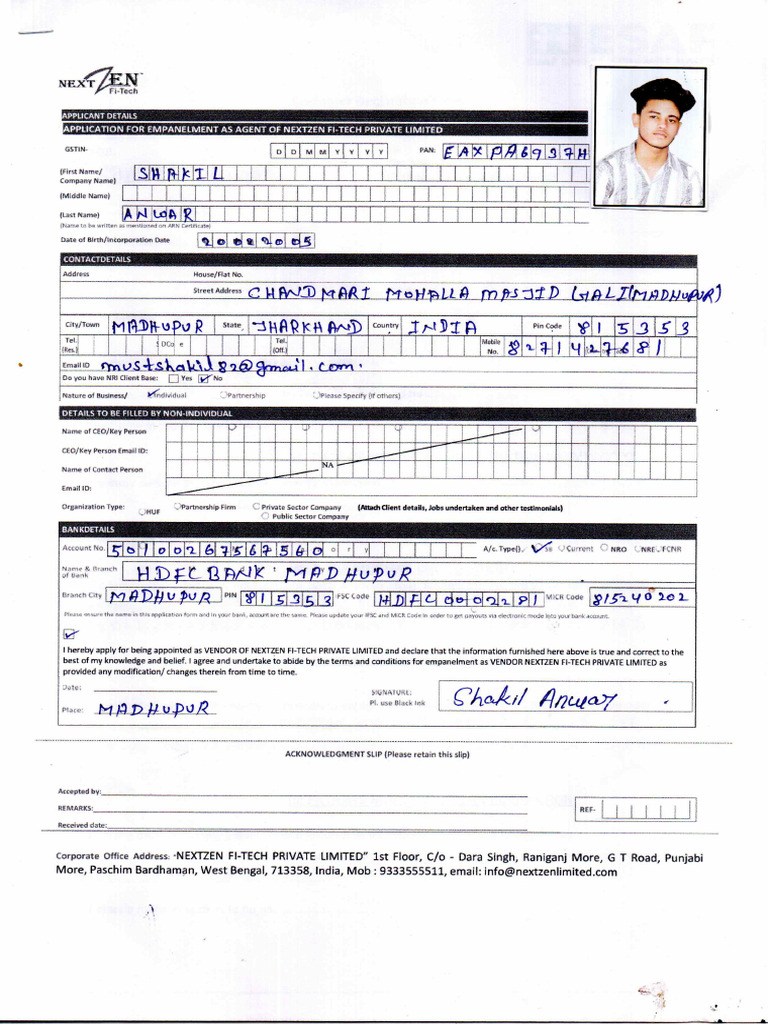 NEXTZEN™
Fi-Tech
APPLICANT DETAILS
APPLICATION FOR EMPANELMENT AS AGENT OF NEXTZEN FI-TECH PRIVATE LIMITED
GSTIN- D D M M Y Y Y Y PAN: EAXPA6937H
(First Name/ Company Name) SHAKIL
(Middle Name)
(Last Name) ANWAR
(Name to be written as mentioned on ARN Certificate)
Date of Birth/Incorporation Date 20022005
CONTACTDETAILS
Address House/Flat No.
Street Address CHANDMARI MOHALLA MASJID GALI (MADHUPUR)
City/Town MADHUPUR State JHARKHAND Country INDIA Pin Code 815353
Tel. (Res.) Tel. (Off.) Mobile No. 8271427681
Email ID mustshakil82@gmail.com.
Do you have NRI Client Base: Yes No
Nature of Business/ Individual Partnership Please Specify (if others)
DETAILS TO BE FILLED BY NON-INDIVIDUAL
Name of CEO/Key Person
CEO/Key Person Email ID:
Name of Contact Person NA
Email ID:
Organization Type: HUF Partnership Firm Private Sector Company (Attach Client details, Jobs undertaken and other testimonials)
Public Sector Company
BANKDETAILS
Account No. 50100267567560 A/c. Type Current NRO NRE FCNR
Name & Branch of Bank HDFC BANK MADHUPUR
Branch City MADHUPUR PIN 815353 FSC Code HDFC0002281 MICR Code 815240202
Please ensure the name in this application form and in your bank, account are the same. Please update your IFSC and MICR Code in order to get payouts via electronic mode into your bank account.
I hereby apply for being appointed as VENDOR OF NEXTZEN FI-TECH PRIVATE LIMITED and declare that the information furnished here above is true and correct to the
best of my knowledge and belief. I agree and undertake to abide by the terms and conditions for empanelment as VENDOR NEXTZEN FI-TECH PRIVATE LIMITED as
provided any modification/ changes therein from time to time.
Date: SIGNATURE: Shakil Anwar
Place: MADHUPUR Pl. use Black Ink
ACKNOWLEDGMENT SLIP (Please retain this slip)
Accepted by:
REMARKS: REF-
Received date:
Corporate Office Address: "NEXTZEN FI-TECH PRIVATE LIMITED" 1st Floor, C/o - Dara Singh, Raniganj More, G T Road, Punjabi
More, Paschim Bardhaman, West Bengal, 713358, India, Mob : 9333555511, email: info@nextzenlimited.com